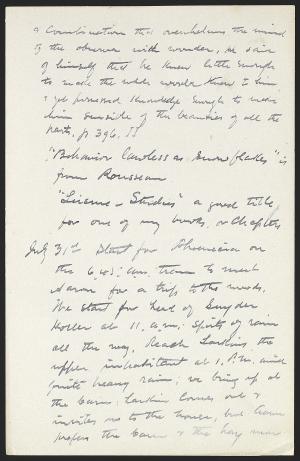 a combination that overwhelms the mind
of the observer with wonder, he said
of himself that he knew little enough
to make the whole wonder known to him
& yet possessed knowledge enough to make
him sensible of the beauties of all the
parts, p 396.
"Behavior lawless as snow flakes" is
from Rousseau
"License - Studies" a good title
for one of my books, or chapters
July 31st Start for Phoenicia on
the 6,45, a.m. train to meet
Aaron for a trip to the woods.
We start for head of Snyder
Hollow at 11, a.m; spits of rain
all the way. Reach Larkins the
upper inhabitant at 1, P.m. amid
quite heavy rain; we bring up at
the barn; Larkin comes out &
invites us to the house, but Aaron
prefers the barn & the hay mow